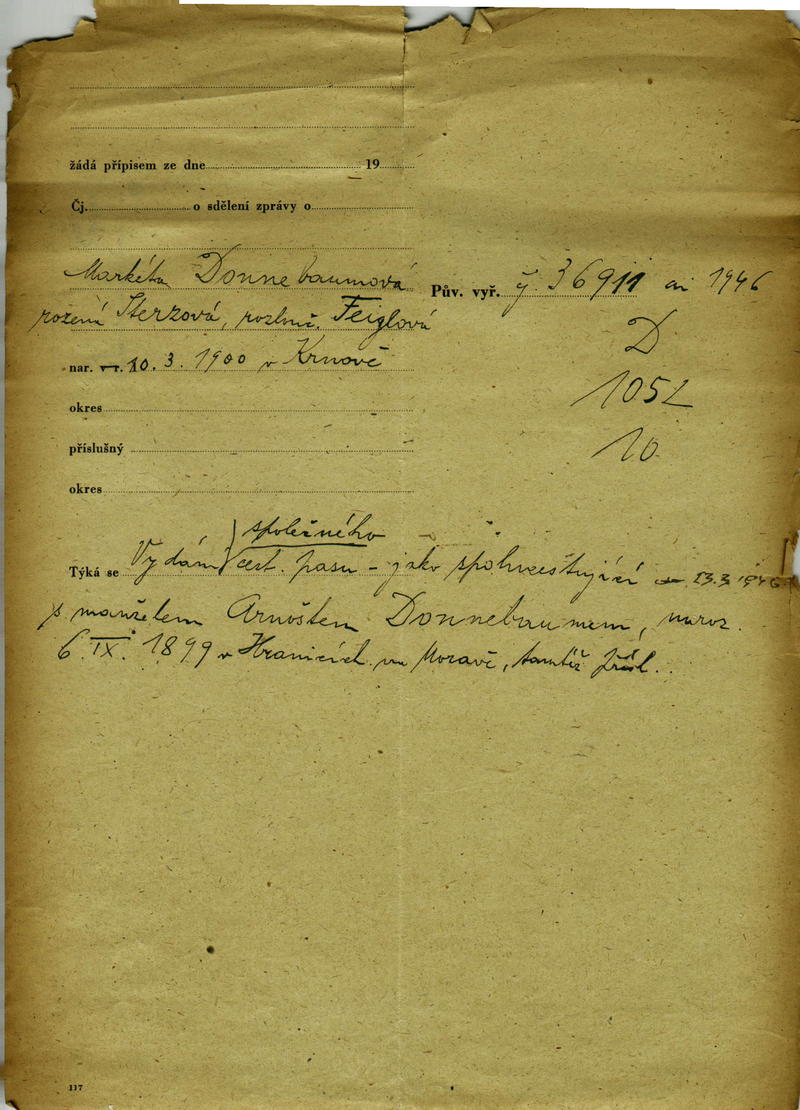 žádá přípisem ze dne 19
Čj. o sdělení zprávy o
Markéta Donnebaumová
rozená Sterzová, rozluč. Feiglová
Pův. vyř. 36911 1946
D
nar. 10. 3. 1900 v Krnově
105
okres
příslušný
10
okres
společného
Týká se Vydání cest. pasu – jako spolucestující 23.3 1946
s manželem Arnoštem Donnebaumem, naroz.
6. IX. 1899 v Hranicích na Moravě, tamtéž přísl.
117